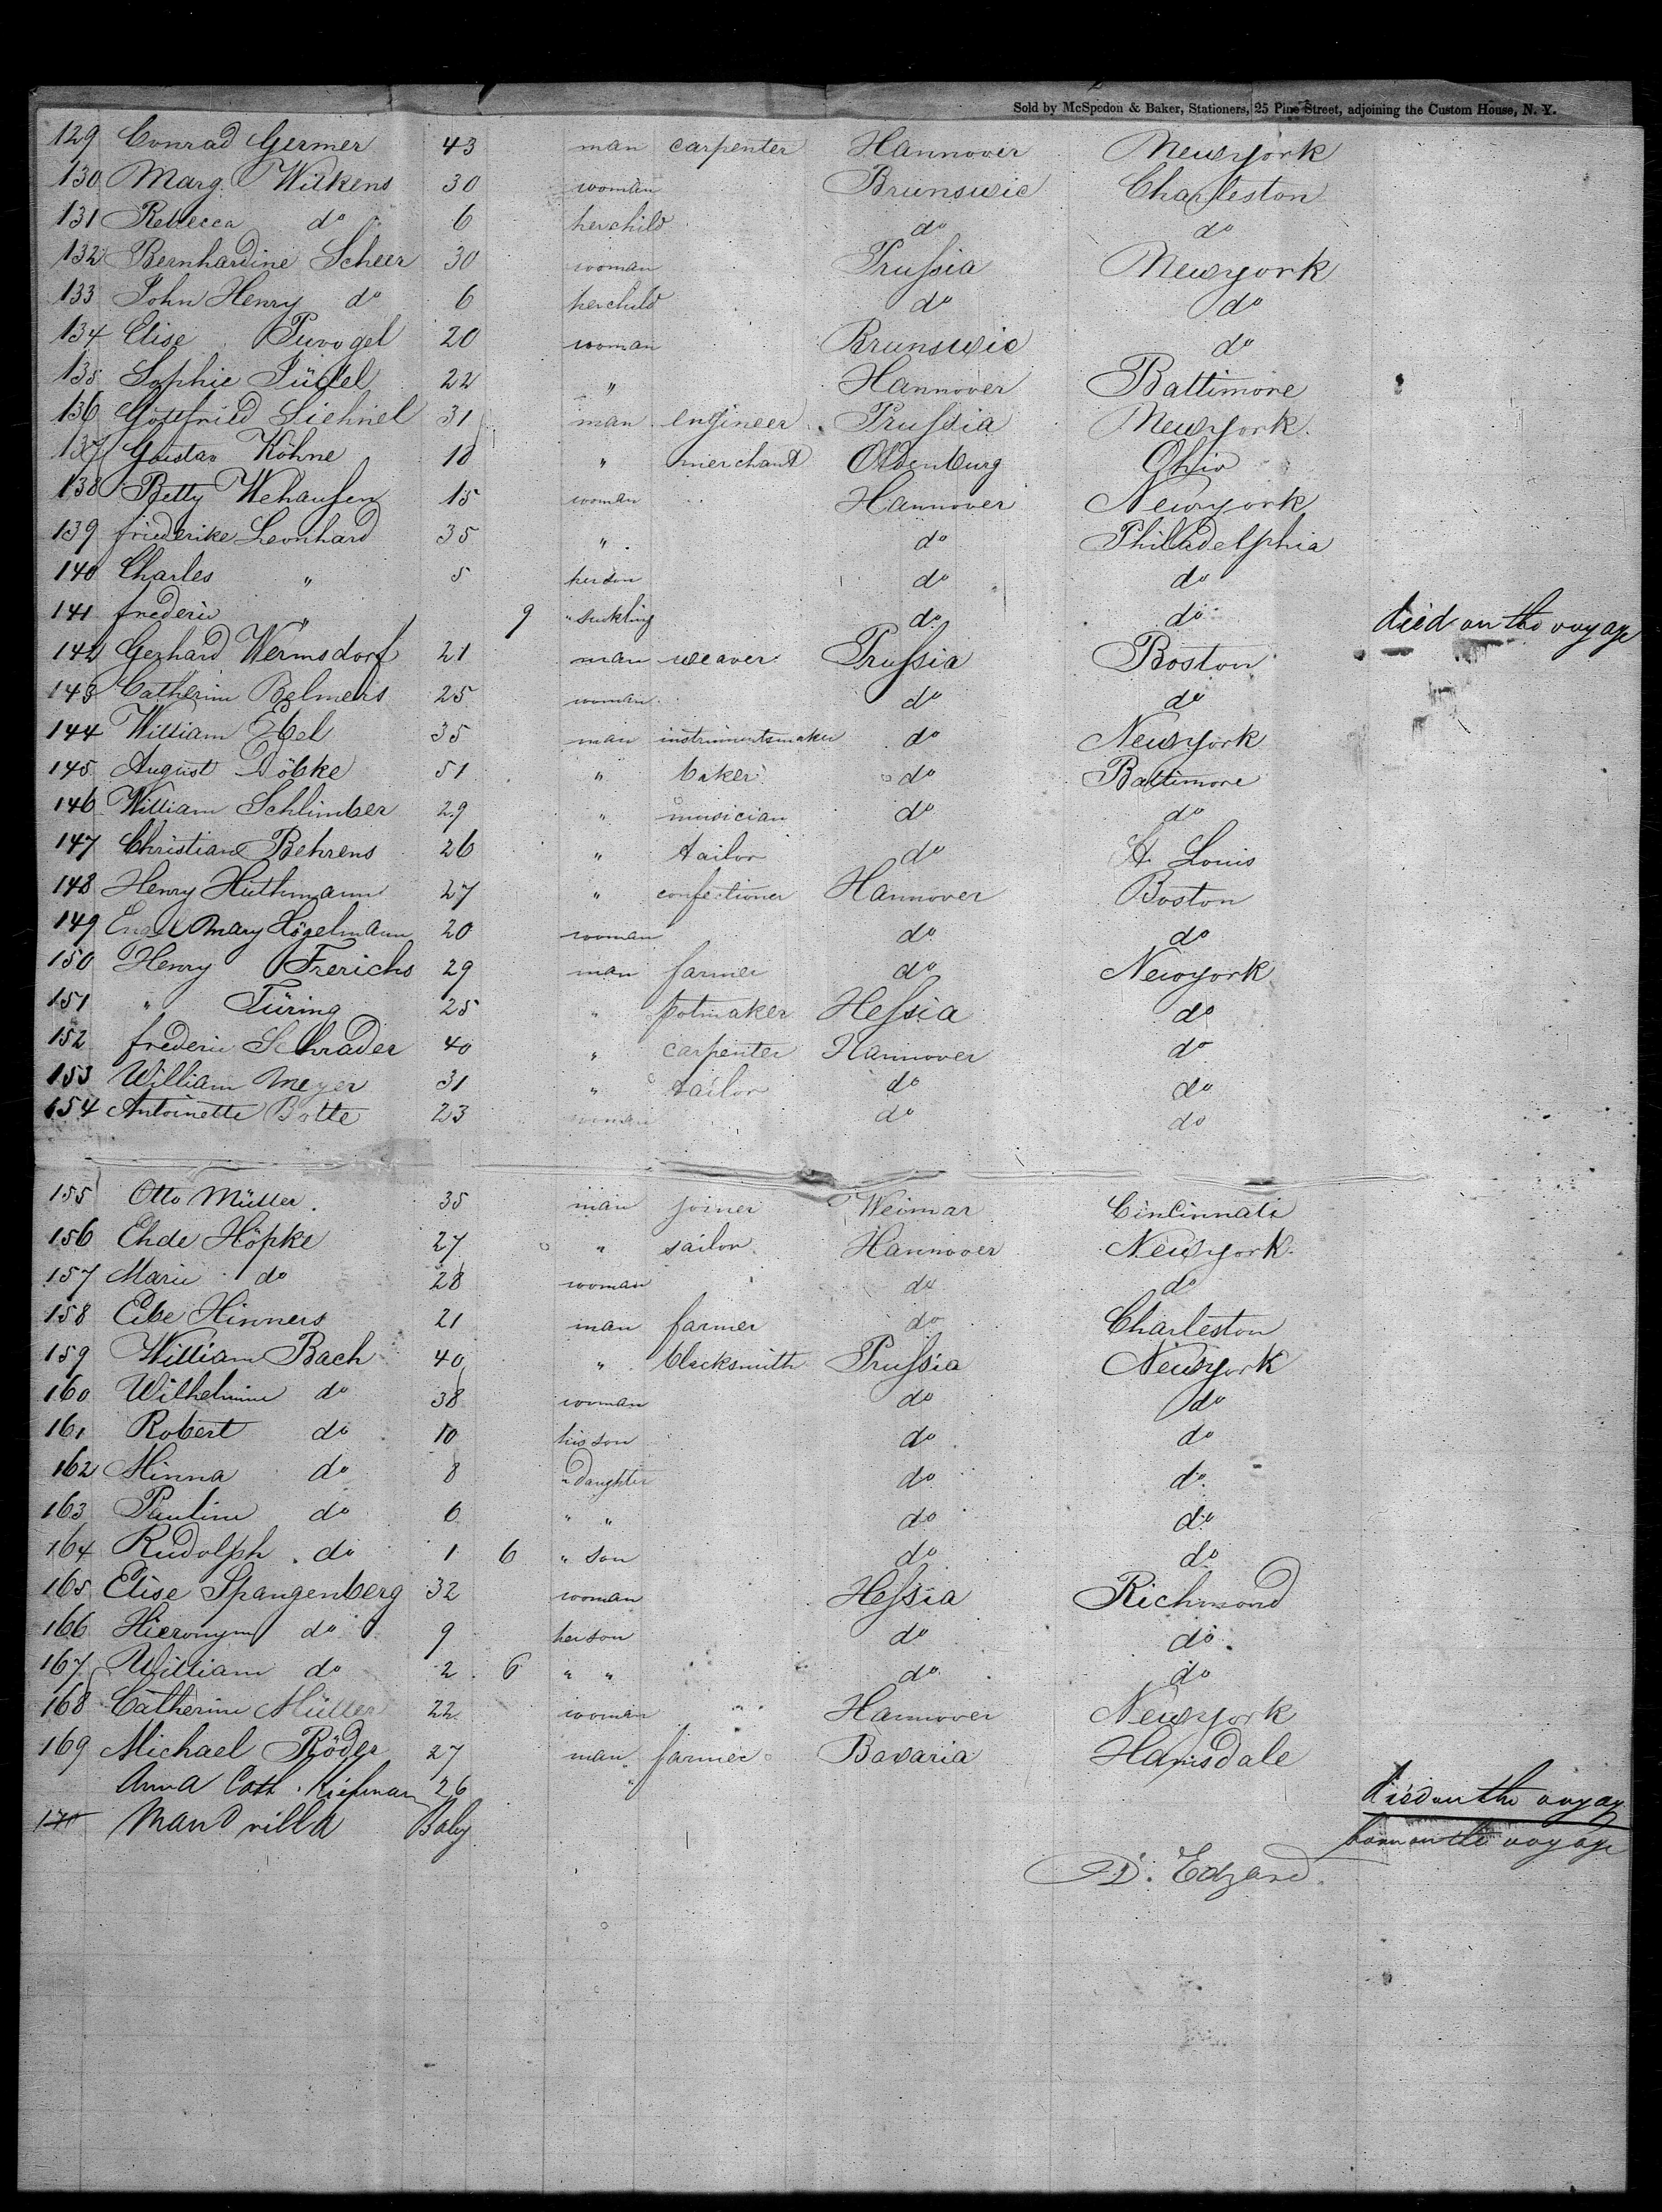 Sold by McSpedon & Baker, Stationers, 25 Pine Street, adjoining the Custom House, N. Y.
129 Conrad Germer 43 man carpenter Hannover Newyork
130 Marg. Wilkens 30 woman Brunswic Charleston
131 Rebecca do 6 her child do do
132 Bernhardine Scheer 30 woman Prussia Newyork
133 John Henry do 6 her child do do
134 Elise Puvogel 20 woman Brunswic do
135 Sophie Jüdel 22 " Hannover Baltimore
136 Gottfried Siehnel 31 man engineer Prussia Newyork
137 Gustav Köhne 18 " merchant Oldenburg Ohio
138 Betty Wehausen 15 woman Hannover Newyork
139 friederike Leonhard 35 " do Philadelphia
140 Charles " 5 her son do do
141 frederic " 9 " suckling do do died on the voyage
142 Gerhard Wermsdorf 21 man weaver Prussia Boston
143 Catherine Belmers 25 woman do do
144 William Ebel 35 man instrumentsmaker do Newyork
145 August Döbke 51 " baker do Baltimore
146 William Schlimber 29 " musician do do
147 Christian Behrens 26 " tailor do St. Louis
148 Henry Huthmann 27 " confectioner Hannover Boston
149 Mary Högelmann 20 woman do do
150 Henry Frerichs 29 man farmer do Newyork
151 " Türing 25 " potmaker Hessia do
152 frederic Schrader 40 " carpenter Hannover do
153 William Meyer 31 " tailor do do
154 Antoinette Botte 23 woman do do
155 Otto Müller 35 man joiner Weimar Cincinnati
156 Ehde Höpke 27 " sailor Hannover Newyork
157 Marie do 28 woman do do
158 Eibe Hinners 21 man farmer do Charleston
159 William Bach 40 " blacksmith Prussia Newyork
160 Wilhelmine do 38 woman do do
161 Robert do 10 his son do do
162 Minna do 8 " daughter do do
163 Pauline do 6 " " do do
164 Rudolph do 1 6 " son do do
165 Elise Spangenberg 32 woman Hessia Richmond
166 Hieronym do 9 her son do do
167 William do 2 6 " " do do
168 Catherine Müller 22 woman Hannover Newyork
169 Michael Röder 27 man farmer Bavaria Harrisdale
Anna Cath. 26 " died on the voyage
170 Baby born on the voyage
D. Edzard